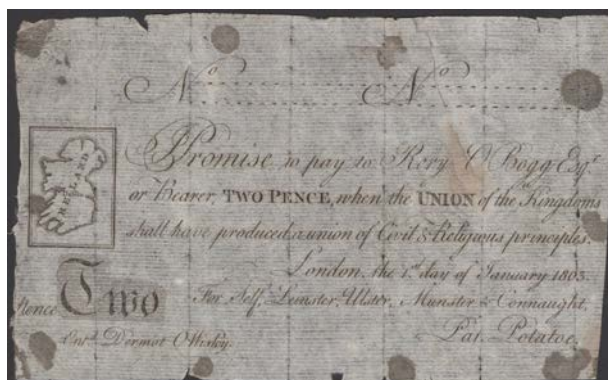 No No
Promise to pay to Rory O'Bogg Esqr.
or Bearer, TWO PENCE, when the UNION of the Kingdoms
shall have produced a union of Civil & Religious principles.
IRELAND
London, the 1st day of January 1803.
For Self, Leinster, Ulster, Munster & Connaught,
Pence Two
Pat. Potatoe.
Entd. Dermot O'Wisky.